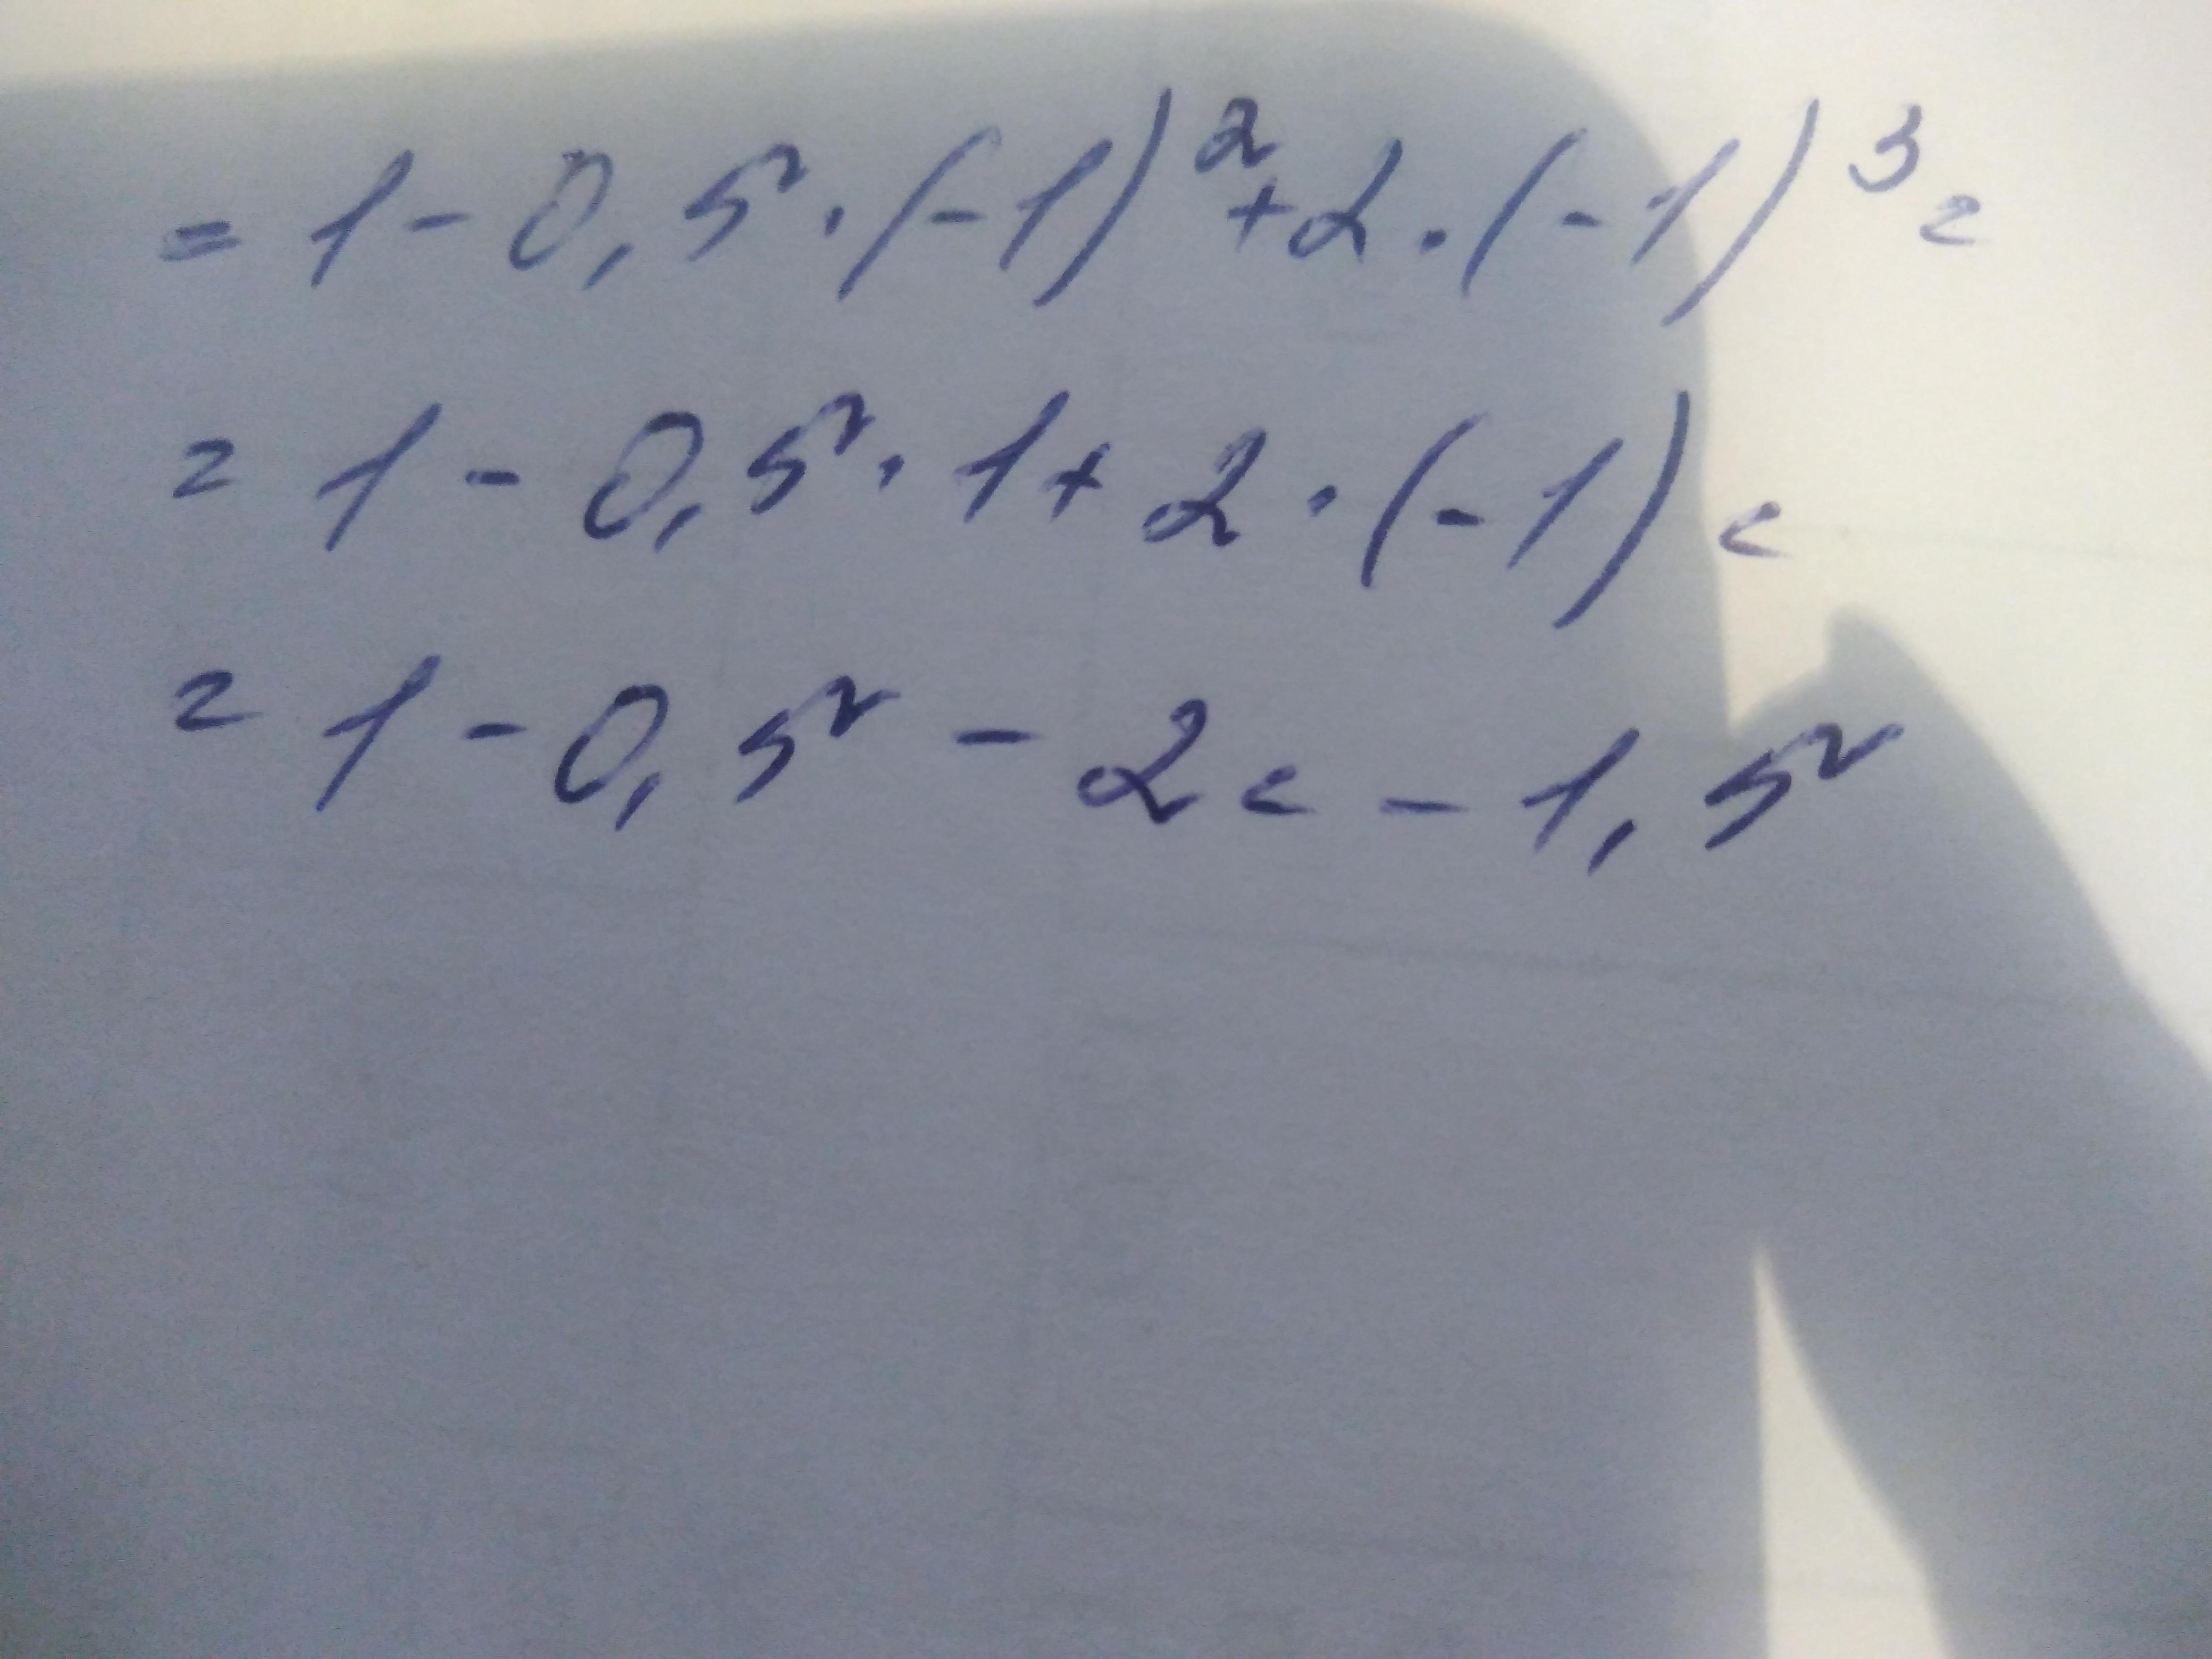 = 1 - 0,5 · (-1)² + 2 · (-1)³ =
= 1 - 0,5 · 1 + 2 · (-1) =
= 1 - 0,5 - 2 = - 1,5